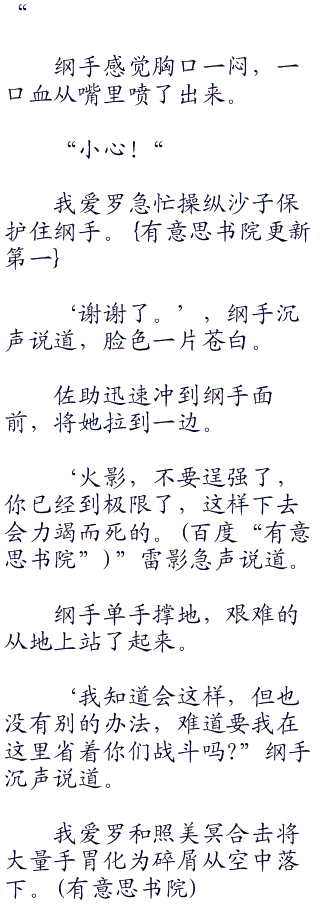 “
纲手感觉胸口一闷，一
口血从嘴里喷了出来。
“小心！“
我爱罗急忙操纵沙子保
护住纲手。{有意思书院更新
第一}
‘谢谢了。’，纲手沉
声说道，脸色一片苍白。
佐助迅速冲到纲手面
前，将她拉到一边。
‘火影，不要逞强了，
你已经到极限了，这样下去
会力竭而死的。(百度“有意
思书院”)”雷影急声说道。
纲手单手撑地，艰难的
从地上站了起来。
‘我知道会这样，但也
没有别的办法，难道要我在
这里省着你们战斗吗?”纲手
沉声说道。
我爱罗和照美冥合击将
大量手胃化为碎屑从空中落
下。(有意思书院)